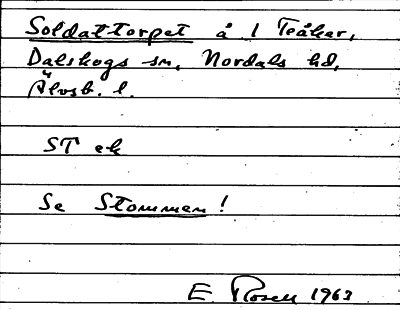 Soldattorpet å 1 Teåker,
Dalskogs sn, Nordals hd,
Älvsb. l.
ST ek
Se Stommen!
E. Rosell 1963